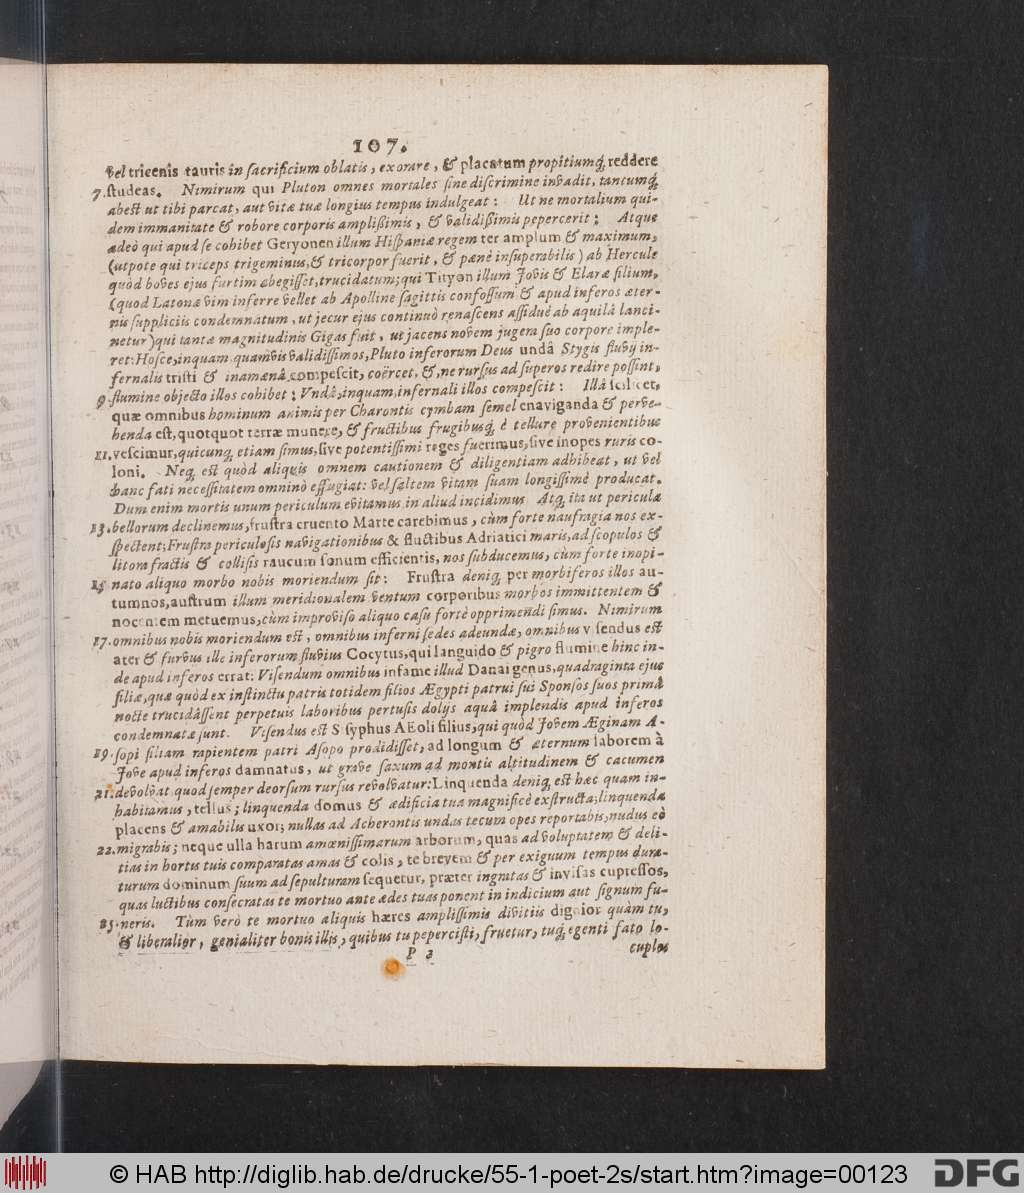 107.
vel tricenis tauris in sacrificium oblatis, exorare, & placatum propitiumq́; reddere
7. studeas. Nimirum qui Pluton omnes mortales sine discrimine invadit, tantumq́;
abest ut tibi parcat, aut vitæ tuæ longius tempus indulgeat: Ut ne mortalium qui-
dem immanitate & robore corporis amplißimis, & validißimis pepercerit: Atque
adeò qui apud se cohibet Geryonen illum Hispaniæ regem ter amplum & maximum,
(utpote qui triceps trigeminus, & tricorpor fuerit, & pænè insuperabilis) ab Hercule
quòd boves ejus furtim abegisset, trucidatum; qui Tityon illum Jovis & Elaræ filium,
(quod Latonæ vim inferre vellet ab Apolline sagittis confossum & apud inferos æter-
nis suppliciis condemnatum, ut jecur ejus continuò renascens assiduè ab aquilâ lanci-
netur) qui tantæ magnitudinis Gigas fuit, ut jacens novem jugera suo corpore imple-
ret: Hosce, inquam quamvis validissimos, Pluto inferorum Deus undâ Stygis fluvij in-
fernalis tristi & inamænâ compescit, coërcet, &, ne rursus ad superos redire possint,
9. flumine objecto illos cohibet: Vndâ, inquam, infernali illos compescit: Illâ scilicet,
quæ omnibus hominum animis per Charontis cymbam semel enaviganda & perve-
henda est, quotquot terræ munere, & fructibus frugibusq́; è tellure provenientibus
11. vescimur, quicunq; etiam simus, sive potentissimi reges fuerimus, sive inopes ruris co-
loni. Neq; est quòd aliquis omnem cautionem & diligentiam adhibeat, ut vel
hanc fati necessitatem omninò effugiat: vel saltem vitam suam longissimè producat.
Dum enim mortis unum periculum evitamus in aliud incidimus Atq; ita ut pericula
13. bellorum declinemus, frustra cruento Marte carebimus, cùm forte naufragia nos ex-
spectent; Frustra periculosis navigationibus & fluctibus Adriatici maris, ad scopulos &
litora fractis & collisis raucum sonum efficientis, nos subducemus, cùm forte inopi-
15 nato aliquo morbo nobis moriendum sit: Frustra deniq; per morbiferos illos au-
tumnos, austrum illum meridionalem ventum corporibus morbos immittentem &
nocentem metuemus, cùm improviso aliquo casu fortè opprimendi simus. Nimirum
17. omnibus nobis moriendum est, omnibus inferni sedes adeundæ, omnibus visendus est
ater & furvus ille inferorum fluvius Cocytus, qui languido & pigro flumine hinc in-
de apud inferos errat: Visendum omnibus infame illud Danai genus, quadraginta ejus
filiæ, quæ quòd ex instinctu patris totidem filios Ægypti patrui sui Sponsos suos primâ
nocte trucidâssent perpetuis laboribus pertusis dolijs aquâ implendis apud inferos
condemnatæ sunt. Visendus est Sisyphus AEoli filius, qui quòd Jovem Æginam A-
19. sopi filiam rapientem patri Asopo prodidisset, ad longum & æternum laborem à
Jove apud inferos damnatus, ut grave saxum ad montis altitudinem & cacumen
21. devolvat quod semper deorsum rursus revolvatur: Linquenda deniq; est hæc quam in-
habitamus, tellus; linquenda domus & ædificia tua magnificè exstructa; linquenda
placens & amabilis uxor; nullas ad Acherontis undas tecum opes reportabis, nudus eò
22. migrabis; neque ulla harum amœnissimarum arborum, quas ad voluptatem & deli-
tias in hortis tuis comparatas amas & colis, te brevem & per exiguum tempus dura-
turum dominum suum ad sepulturam sequetur, præter ingratas & invisas cupressos,
quas luctibus consecratas te mortuo ante ædes tuas ponent in indicium aut signum fu-
25. neris. Tùm verò te mortuo aliquis hæres amplissimis divitiis dignior quàm tu,
& liberalior, genialiter bonis illis, quibus tu pepercisti, fruetur, tuq́; egenti fato lo-
P 2 cuples
© HAB http://diglib.hab.de/drucke/55-1-poet-2s/start.htm?image=00123 DFG